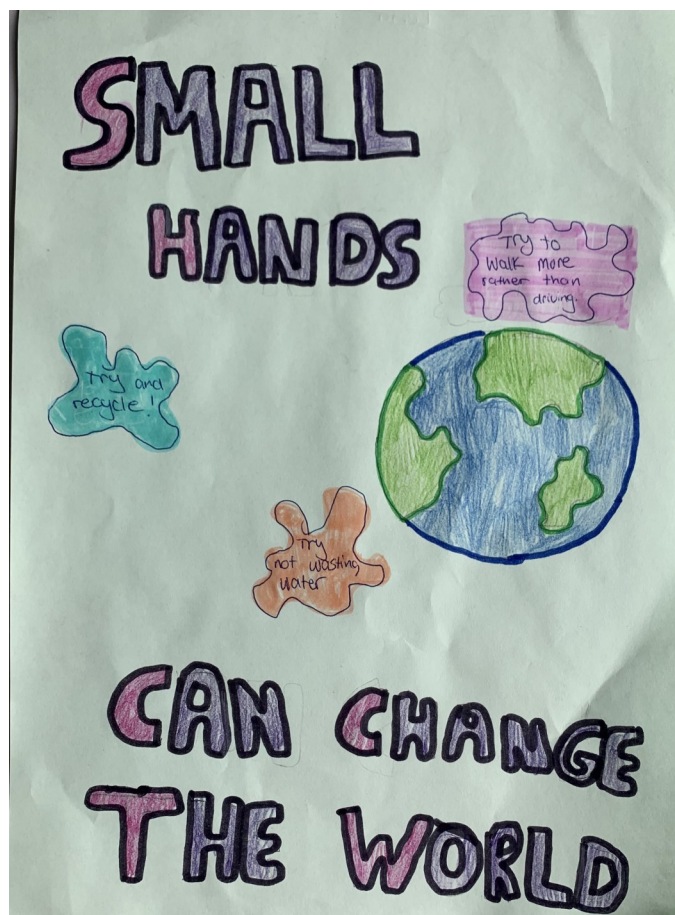 SMALL
HANDS
Try to
walk more
rather than
driving.
Try and
recycle!
Try
not wasting
water
CAN CHANGE
THE WORLD